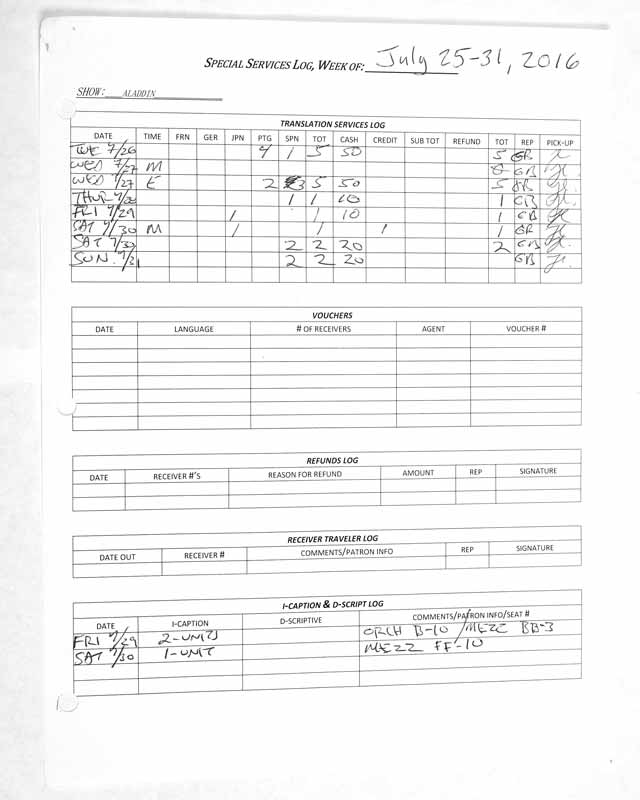 SPECIAL SERVICES LOG, WEEK OF: July 25-31, 2016
SHOW: ALADDIN
TRANSLATION SERVICES LOG
DATE TIME FRN GER JPN PTG SPN TOT CASH CREDIT SUB TOT REFUND TOT REP PICK-UP
TUE 7/26 4 1 5 50 5 GB
WED 7/27 M 0 GB
WED 7/27 E 2 3 5 50 5 GB
THUR 7/28 1 1 10 1 GB
FRI 7/29 1 1 10 1 GB
SAT 7/30 M 1 1 1 1 GB
SAT 7/30 2 2 20 2 GB
SUN. 7/31 2 2 20 GB
VOUCHERS
DATE LANGUAGE # OF RECEIVERS AGENT VOUCHER #
REFUNDS LOG
DATE RECEIVER #'S REASON FOR REFUND AMOUNT REP SIGNATURE
RECEIVER TRAVELER LOG
DATE OUT RECEIVER # COMMENTS/PATRON INFO REP SIGNATURE
I-CAPTION & D-SCRIPT LOG
DATE I-CAPTION D-SCRIPTIVE COMMENTS/PATRON INFO/SEAT #
FRI 7/29 2-UNITS ORCH B-10 / MEZZ BB-3
SAT 7/30 1-UNIT MEZZ FF-10